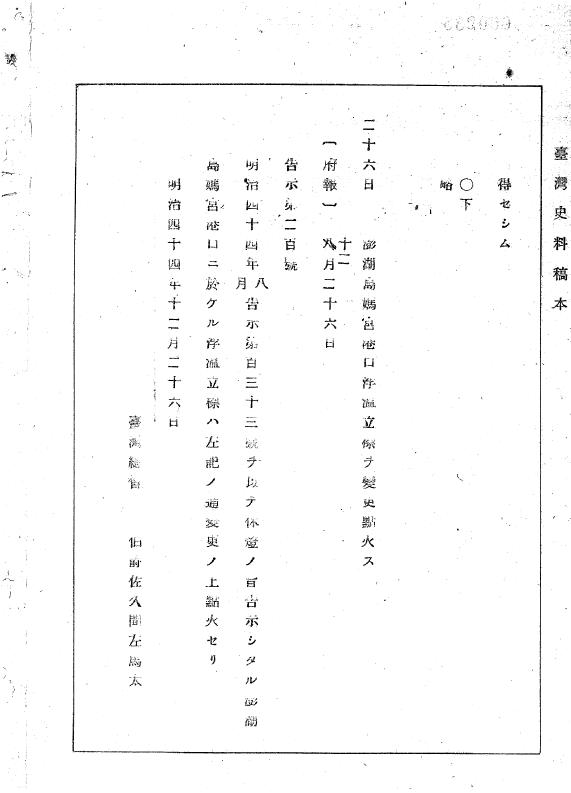 臺灣史料稿本
得セシム
〇下
略
二十六日 澎湖島媽宮港口浮標立標ヲ變更點火ス
〔府報〕 十二月二十六日
告示第二百號
明治四十四年八月告示第百三十三號ヲ以テ休燈ノ旨告示シタル澎湖
島媽宮港口ニ於ケル浮標立標ハ左記ノ通變更ノ上點火セリ
明治四十四年十二月二十六日
臺灣總督 伯爵佐久間左馬太